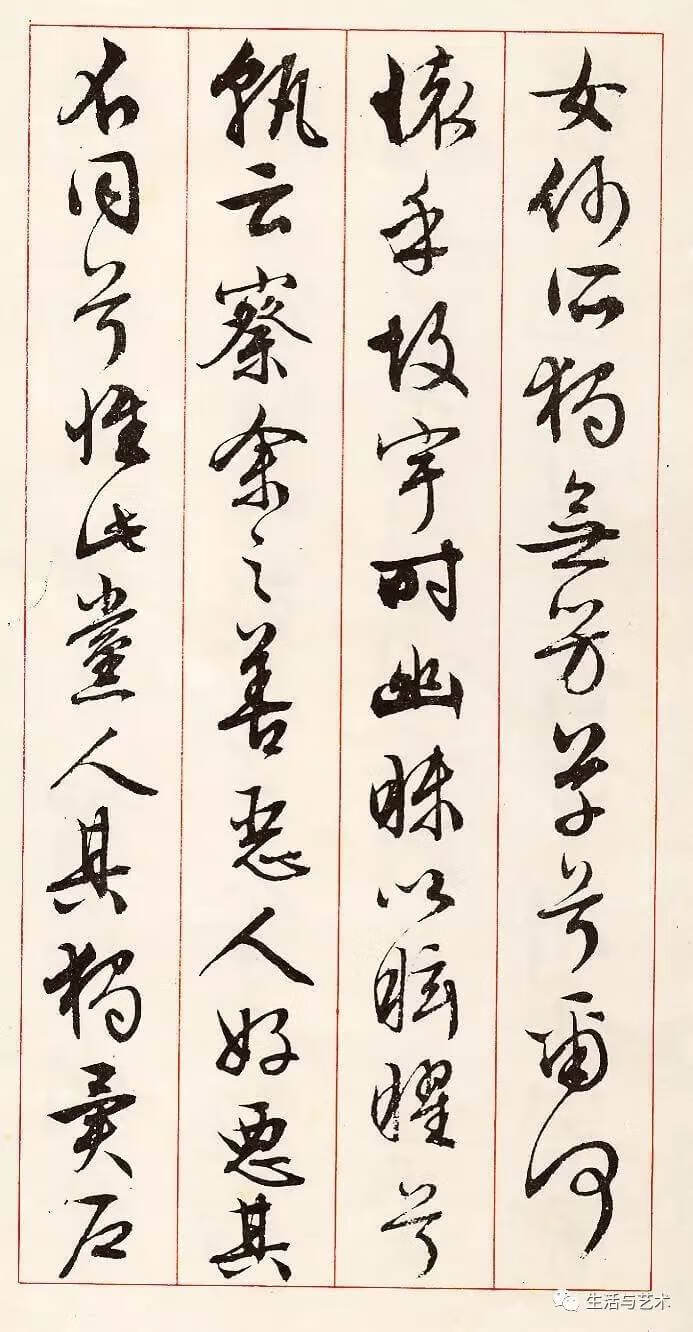 女何所獨無芳草兮爾何
懷乎故宇時幽昧以眩曜兮
孰云察余之善惡人好惡其
不同兮惟此黨人其獨異户
生活与艺术